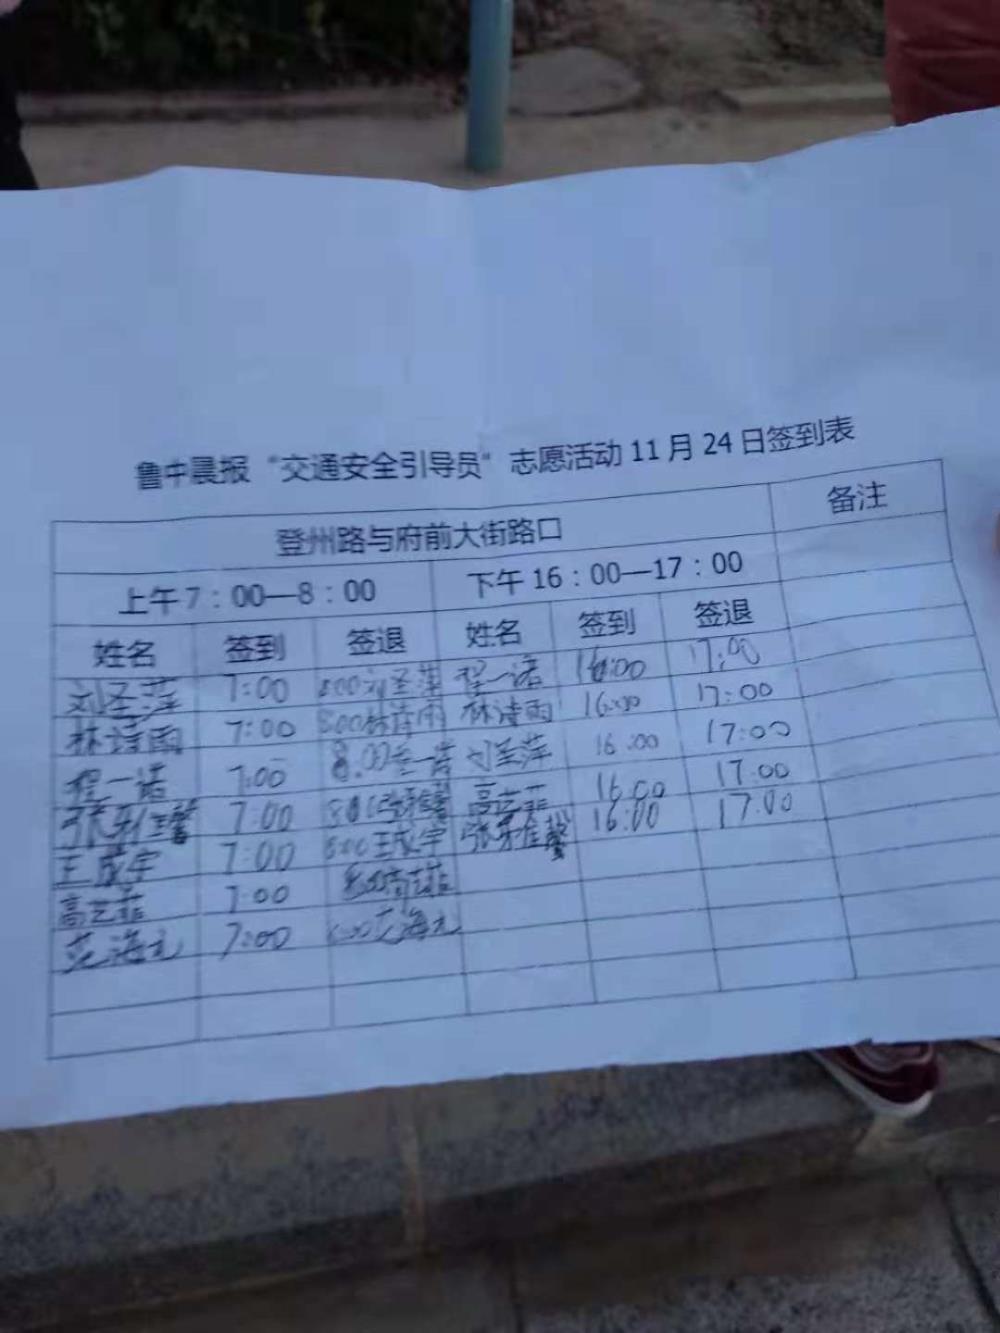 鲁中晨报“交通安全引导员”志愿活动11月24日签到表
登州路与府前大街路口 备注
上午7：00—8：00 下午16：00—17：00
姓名 签到 签退 姓名 签到 签退
刘圣萍 7:00 8:00刘圣萍 程一诺 16:00 17:00
林诗雨 7:00 8:00林诗雨 林诗雨 16:00 17:00
程一诺 7:00 8:00程一诺 刘圣萍 16:00 17:00
张雅馨 7:00 8:00张雅馨 高艺菲 16:00 17:00
王成宇 7:00 8:00王成宇 张雅馨 16:00 17:00
高艺菲 7:00 8:00高艺菲
范海元 7:00 8:00范海元